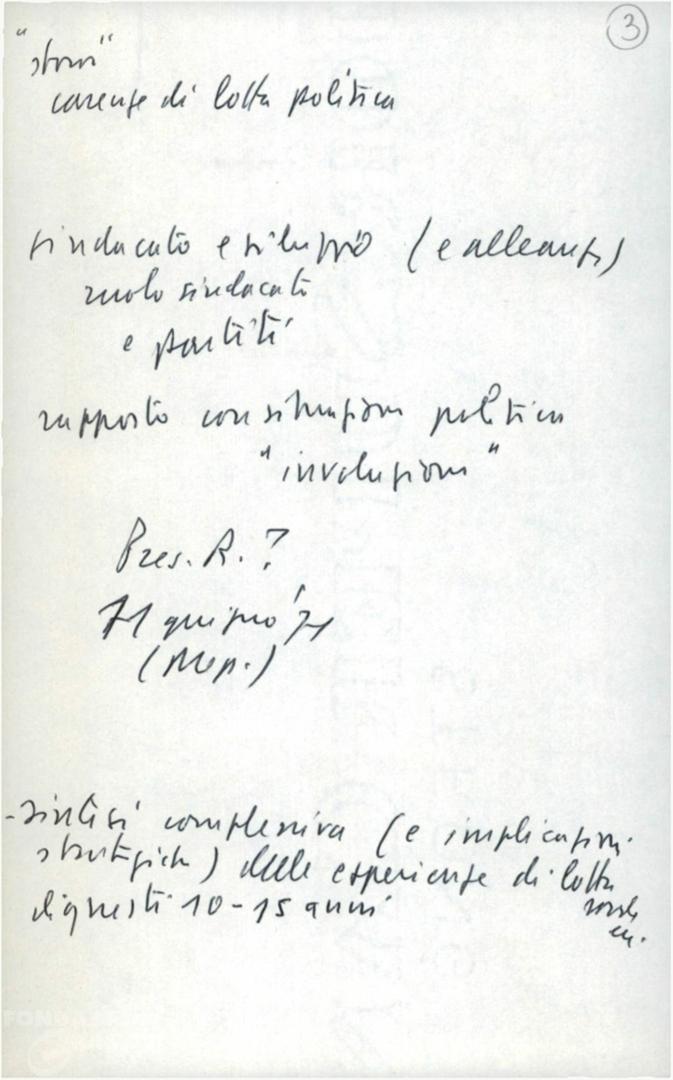 3
"storia"
carenze di lotta politica
sindacato e sviluppo (e alleanze)
ruolo sindacato
e partiti
rapporto con situazione politica
"involuzione"
Pres. R. ?
71 giugno '71
(Mep.)
- sintesi complessiva (e implicazioni
strategiche) delle esperienze di lotta
di questi 10-15 anni
FONDA